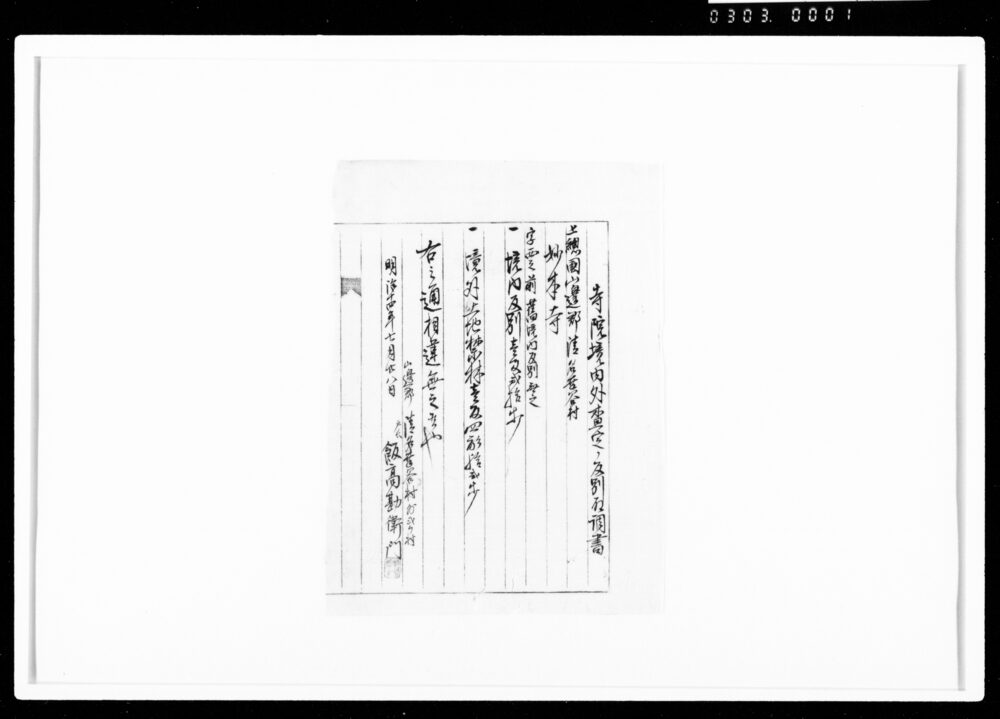 0303. 0001
寺院境内外畫定ノ反別取調書
上總國山邊郡清名幸谷村
妙本寺
字西之前 舊境内反別
一 境内反別壱反弐拾歩
一 境外上地 壱反四畝拾 歩
右之通相違無之
明治十四年七月廿八日
山邊郡 清名幸谷村外 村
飯高勘 衛門